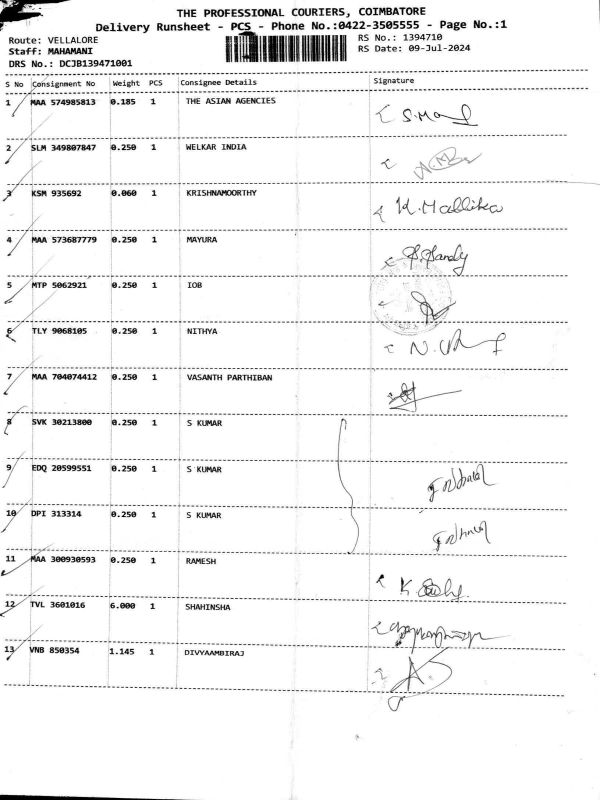 THE PROFESSIONAL COURIERS, COIMBATORE
Delivery Runsheet - PCS - Phone No.:0422-3505555 - Page No.:1
Route: VELLALORE RS No.: 1394710
Staff: MAHAMANI RS Date: 09-Jul-2024
DRS No.: DCJB139471001
S No Consignment No Weight PCS Consignee Details Signature
1 MAA 574985813 0.185 1 THE ASIAN AGENCIES
2 SLM 349807847 0.250 1 WELKAR INDIA
3 KSM 935692 0.060 1 KRISHNAMOORTHY K.Mallika
4 MAA 573687779 0.250 1 MAYURA
5 MTP 5062921 0.250 1 IOB
6 TLY 9068105 0.250 1 NITHYA
7 MAA 704074412 0.250 1 VASANTH PARTHIBAN
8 SVK 30213800 0.250 1 S KUMAR
9 EDQ 20599551 0.250 1 S KUMAR
10 DPI 313314 0.250 1 S KUMAR
11 MAA 300930593 0.250 1 RAMESH
12 TVL 3601016 6.000 1 SHAHINSHA
13 VNB 850354 1.145 1 DIVYAAMBIRAJ